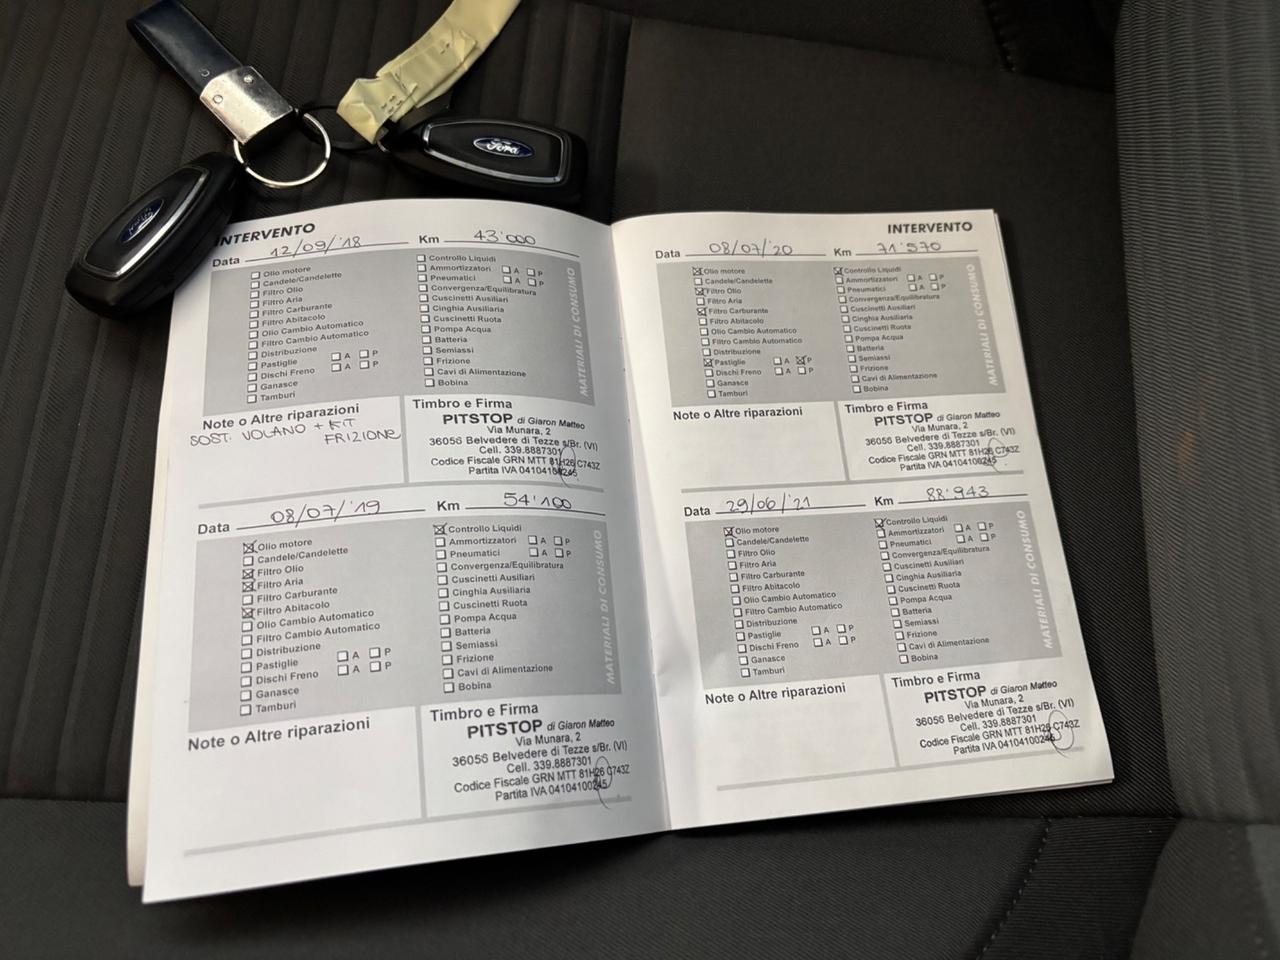 Ford
INTERVENTO
Data 12/09/'18 Km 43'000
Olio motore
Candele/Candelette
Filtro Olio
Filtro Aria
Filtro Carburante
Filtro Abitacolo
Olio Cambio Automatico
Filtro Cambio Automatico
Distribuzione
Pastiglie A P
Dischi Freno A P
Ganasce
Tamburi
Controllo Liquidi
Ammortizzatori A P
Pneumatici A P
Convergenza/Equilibratura
Cuscinetti Ausiliari
Cinghia Ausiliaria
Cuscinetti Ruota
Pompa Acqua
Batteria
Semiassi
Frizione
Cavi di Alimentazione
Bobina
MATERIALI DI CONSUMO
Note o Altre riparazioni
SOST. VOLANO + KIT
FRIZIONE
Timbro e Firma
PITSTOP di Giaron Matteo
Via Munara, 2
36056 Belvedere di Tezze s/Br. (VI)
Cell. 339.8887301
Codice Fiscale GRN MTT 81H26 C743Z
Partita IVA 04104100245
Data 08/07/'19 Km 54'100
Olio motore
Candele/Candelette
Filtro Olio
Filtro Aria
Filtro Carburante
Filtro Abitacolo
Olio Cambio Automatico
Filtro Cambio Automatico
Distribuzione
Pastiglie A P
Dischi Freno A P
Ganasce
Tamburi
Controllo Liquidi
Ammortizzatori A P
Pneumatici A P
Convergenza/Equilibratura
Cuscinetti Ausiliari
Cinghia Ausiliaria
Cuscinetti Ruota
Pompa Acqua
Batteria
Semiassi
Frizione
Cavi di Alimentazione
Bobina
MATERIALI DI CONSUMO
Note o Altre riparazioni
Timbro e Firma
PITSTOP di Giaron Matteo
Via Munara, 2
36056 Belvedere di Tezze s/Br. (VI)
Cell. 339.8887301
Codice Fiscale GRN MTT 81H26 C743Z
Partita IVA 04104100245
INTERVENTO
Data 08/07/'20 Km 71'570
Olio motore
Candele/Candelette
Filtro Olio
Filtro Aria
Filtro Carburante
Filtro Abitacolo
Olio Cambio Automatico
Filtro Cambio Automatico
Distribuzione
Pastiglie A P
Dischi Freno A P
Ganasce
Tamburi
Controllo Liquidi
Ammortizzatori A P
Pneumatici A P
Convergenza/Equilibratura
Cuscinetti Ausiliari
Cinghia Ausiliaria
Cuscinetti Ruota
Pompa Acqua
Batteria
Semiassi
Frizione
Cavi di Alimentazione
Bobina
MATERIALI DI CONSUMO
Note o Altre riparazioni
Timbro e Firma
PITSTOP di Giaron Matteo
Via Munara, 2
36056 Belvedere di Tezze s/Br. (VI)
Cell. 339.8887301
Codice Fiscale GRN MTT 81H26 C743Z
Partita IVA 04104100245
Data 29/06/'21 Km 88'943
Olio motore
Candele/Candelette
Filtro Olio
Filtro Aria
Filtro Carburante
Filtro Abitacolo
Olio Cambio Automatico
Filtro Cambio Automatico
Distribuzione
Pastiglie A P
Dischi Freno A P
Ganasce
Tamburi
Controllo Liquidi
Ammortizzatori A P
Pneumatici A P
Convergenza/Equilibratura
Cuscinetti Ausiliari
Cinghia Ausiliaria
Cuscinetti Ruota
Pompa Acqua
Batteria
Semiassi
Frizione
Cavi di Alimentazione
Bobina
MATERIALI DI CONSUMO
Note o Altre riparazioni
Timbro e Firma
PITSTOP di Giaron Matteo
Via Munara, 2
36056 Belvedere di Tezze s/Br. (VI)
Cell. 339.8887301
Codice Fiscale GRN MTT 81H26 C743Z
Partita IVA 04104100245